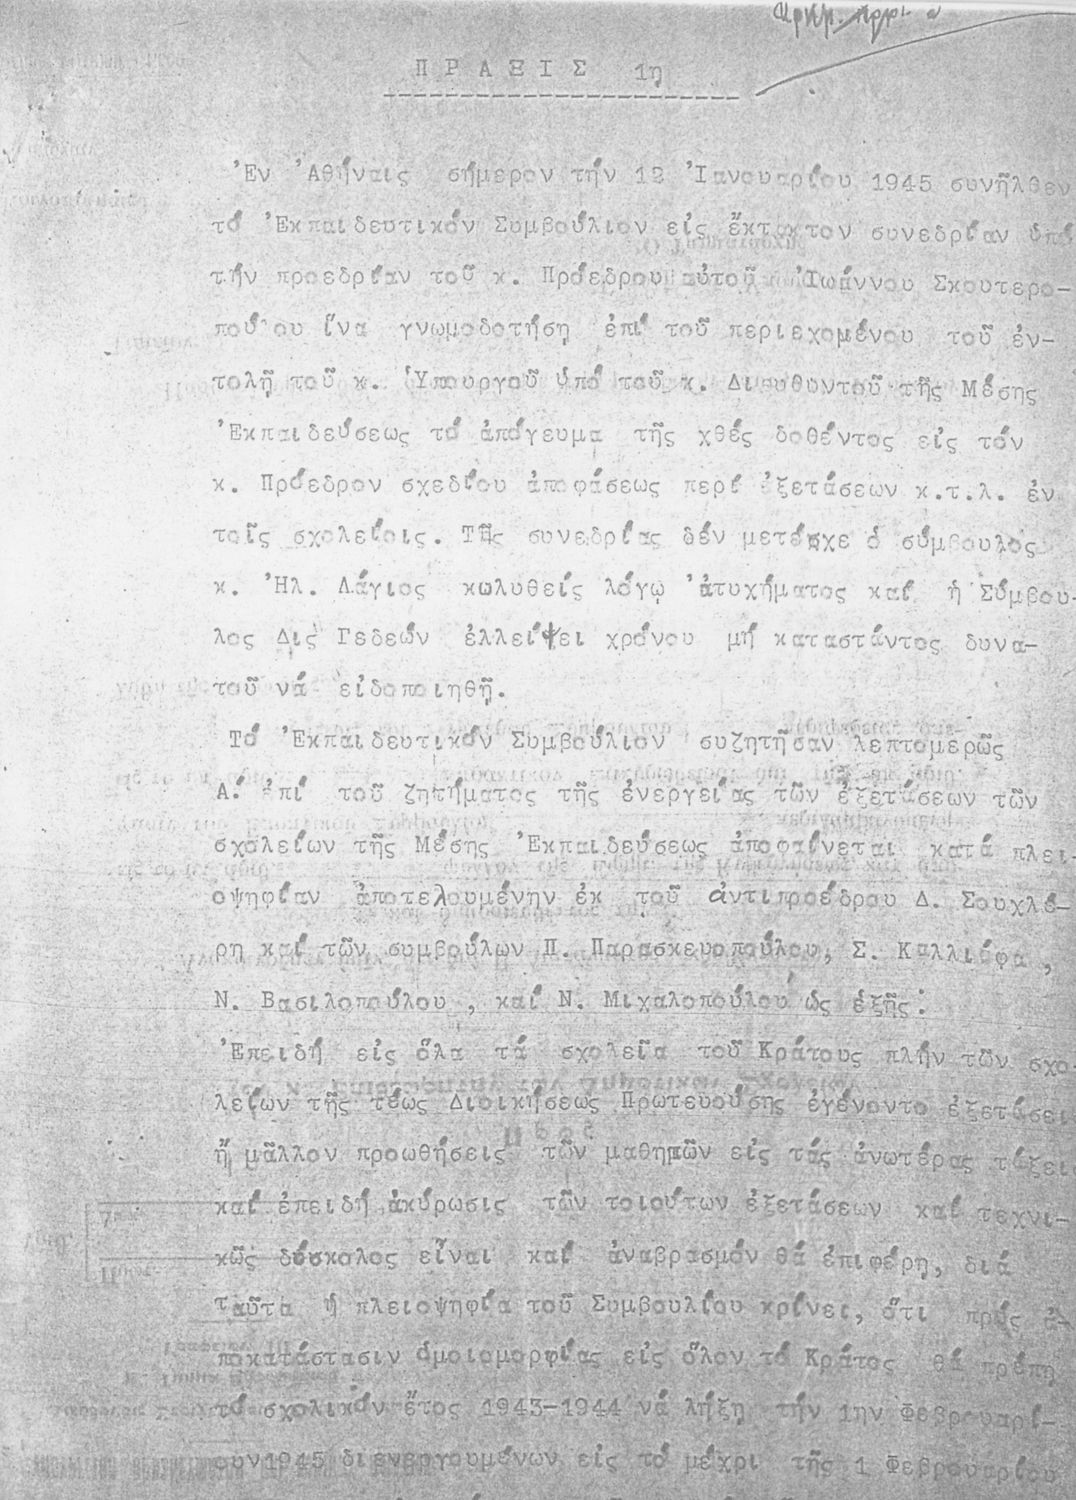 ΠΡΑΞΙΣ 1η
Ἐν Ἀθήναις σήμερον τήν 12 Ἰανουαρίου 1945 συνῆλθεν
τό Ἐκπαιδευτικόν Συμβούλιον εἰς ἔκτακτον συνεδρίαν ὑπό
τήν προεδρίαν τοῦ κ. Πρόεδρου αὐτοῦ Ἰωάννου Σκουτερο-
πούλου ἵνα γνωμοδοτήση ἐπί τοῦ περιεχομένου τοῦ ἐν-
τολῇ τοῦ κ. Ὑπουργοῦ ὑπό τοῦ κ. Διευθυντοῦ τῆς Μέσης
Ἐκπαιδεύσεως τό ἀπόγευμα τῆς χθές δοθέντος εἰς τόν
κ. Πρόεδρον σχεδίου ἀποφάσεως περί ἐξετάσεων κ.τ.λ. ἐν
τοῖς σχολείοις. Τῆς συνεδρίας δέν μετέσχε ὁ σύμβουλος
κ. Ἠλ. Λάγιος κωλυθείς λόγῳ ἀτυχήματος καί ἡ Σύμβου-
λος Δις Γεδεών ἐλλείψει χρόνου μή καταστάντος δυνα-
τοῦ νά εἰδοποιηθῇ.
Τό Ἐκπαιδευτικόν Συμβούλιον συζητῆσαν λεπτομερῶς
Α. ἐπί τοῦ ζητήματος τῆς ἐνεργείας τῶν ἐξετάσεων τῶν
σχολείων τῆς Μέσης Ἐκπαιδεύσεως ἀποφαίνεται κατά πλει-
οψηφίαν ἀποτελουμένην ἐκ τοῦ ἀντιπροέδρου Δ. Σουχλέ-
ρη καί τῶν συμβούλων Π. Παρασκευοπούλου, Σ. Καλλιάφα,
Ν. Βασιλοπούλου, καί Ν. Μιχαλοπούλου ὡς ἑξῆς:
Ἐπειδή εἰς ὅλα τά σχολεῖα τοῦ Κράτους πλήν τῶν σχο-
λείων τῆς τέως Διοικήσεως Πρωτευούσης ἐγένοντο ἐξετάσει
ἤ μᾶλλον προωθήσεις τῶν μαθητῶν εἰς τάς ἀνωτέρας τάξεις
καί ἐπειδή ἀκύρωσις τῶν τοιούτων ἐξετάσεων καί τεχνι-
κῶς δύσκολος εἶναι καί ἀναβρασμόν θά ἐπιφέρη, διά
ταῦτα ἡ πλειοψηφία τοῦ Συμβουλίου κρίνει, ὅτι πρός ἀ-
ποκατάστασιν ὁμοιομορφίας εἰς ὅλον τό Κράτος θά πρέπη
τό σχολικόν ἔτος 1943-1944 νά λήξη τήν 1ην Φεβρουαρί-
ουν1945 διενεργουμένων εἰς τό μέχρι τῆς 1 Φεβρουαρίου